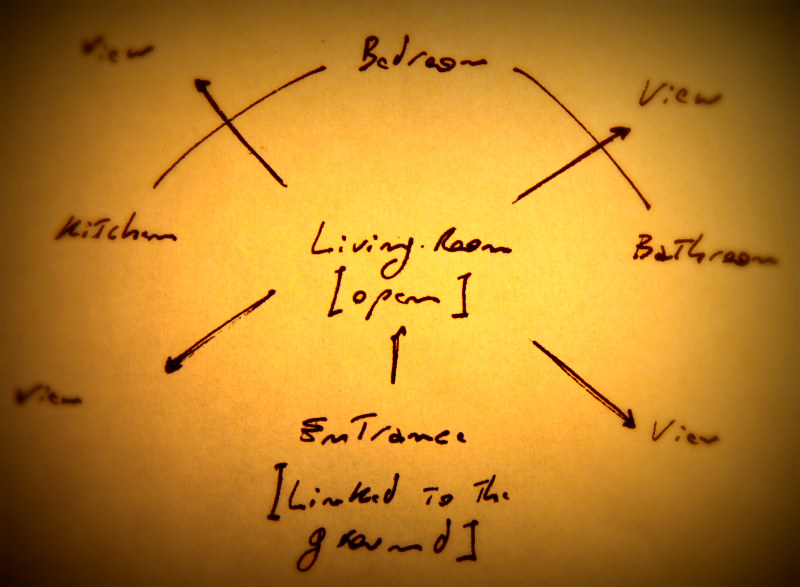 View
Bedroom
View
Kitchen
Living-Room
[open]
Bathroom
View
View
Entrance
[Linked to the
ground]